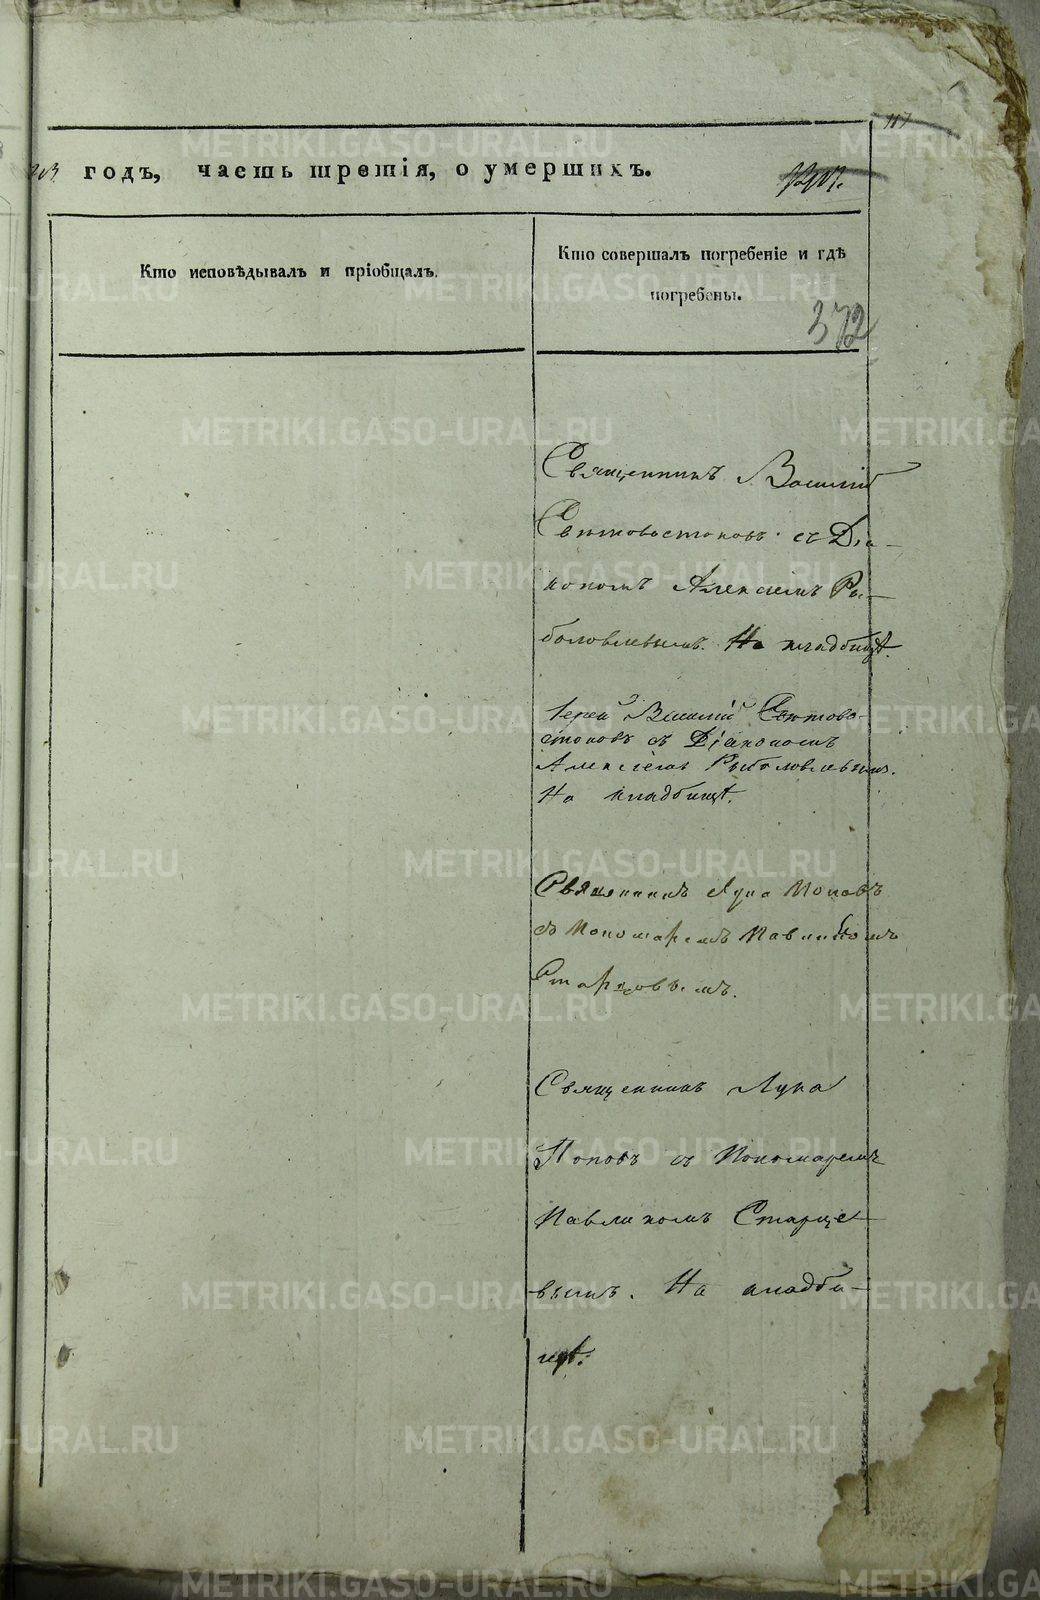 годъ, часть третія, о умершихъ.
Кто исповѣдывалъ и пріобщалъ.
Кто совершалъ погребеніе и гдѣ
погребены.
372
Священникъ Василій
Свѣтовостоковъ съ Діа-
кономъ Алексіемъ Ры-
боловлевымъ. На кладбищѣ.
Іерей Василій Свѣтово-
стоковъ съ Діакономъ
Алексіемъ Рыболовлевымъ.
На кладбищѣ.
Священникъ Лука Поповъ
съ Пономаремъ Павликомъ
Старцовымъ.
Священникъ Лука
Поповъ съ Пономаремъ
Павликомъ Старце
вымъ. На кладби-
щѣ.
METRIKI.GASO-URAL.RU